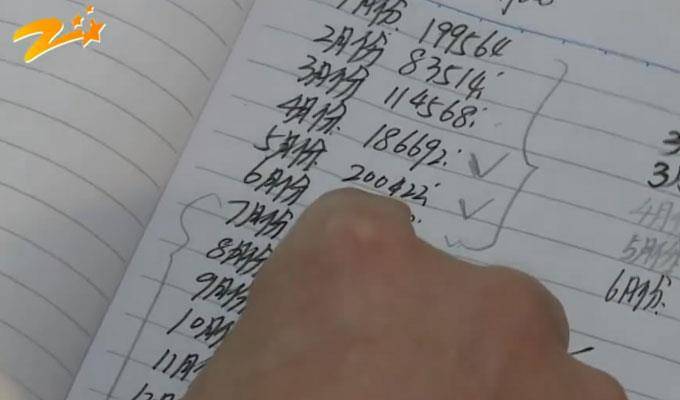 1月份 199564
2月份 83514;
3月份 114568;
4月份 186692;
5月份 200422;
6月份
7月份
8月份
9月份
10月份
11月
12月
3
3
4月份
5月份
6月份